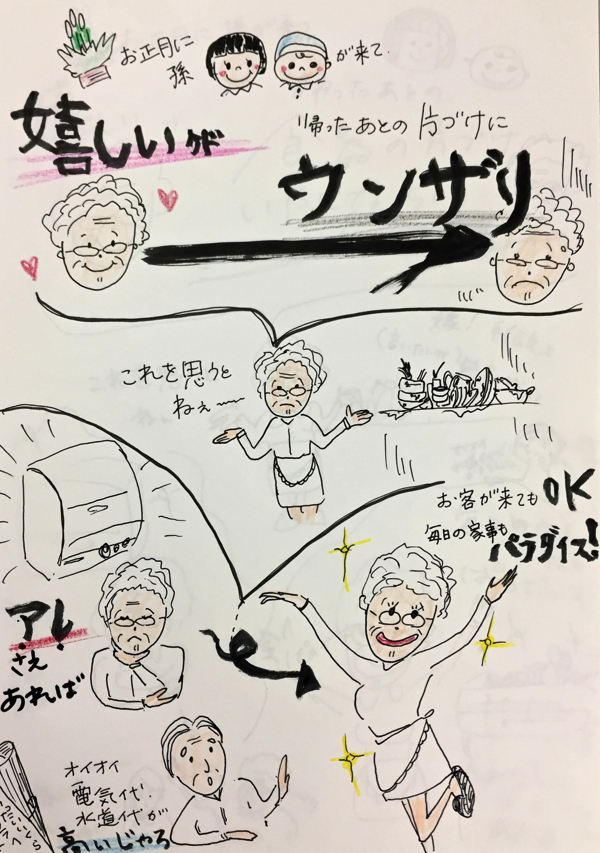 お正月に
孫
が来て
嬉しいケド
帰ったあとの片づけに
ウンザリ
これを思うと
ねぇ〜
お客が来てもOK
毎日の家事も
パラダイス!
アレ!
さえ
あれば
オイオイ
電気代、
水道代が
高いじゃろ